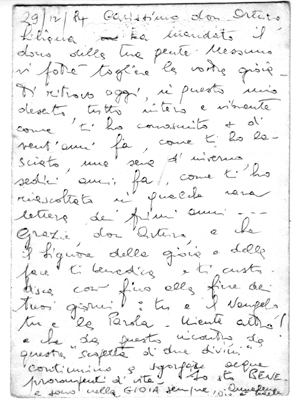 29/12/84 Carissimo don Arturo
Liliana mi ha mandato il
dono della tua gente. Nessuno
vi potrà togliere la vostra gioia.
Ti ritrovo oggi, in questo mio
deserto, tutto intero e vibrante
come ti ho conosciuto
vent'anni fa, come ti ho la-
sciato, una sera d'inverno,
sedici anni fa, come ti ho
riascoltato in qualche rara
lettera dei primi anni ---
Grazie, don Arturo, e che
il Signore della gioia e della
pace ti benedica e ti custo-
disca così fino alla fine dei
tuoi giorni: tu e il Vangelo
tu e la Parola. Niente altro!
e che da questo incontro, da
questa scoperta di due
continuino a sgorgare acque
prorompenti di vita - Io sto BENE
e sono nella GIOIA sempre.